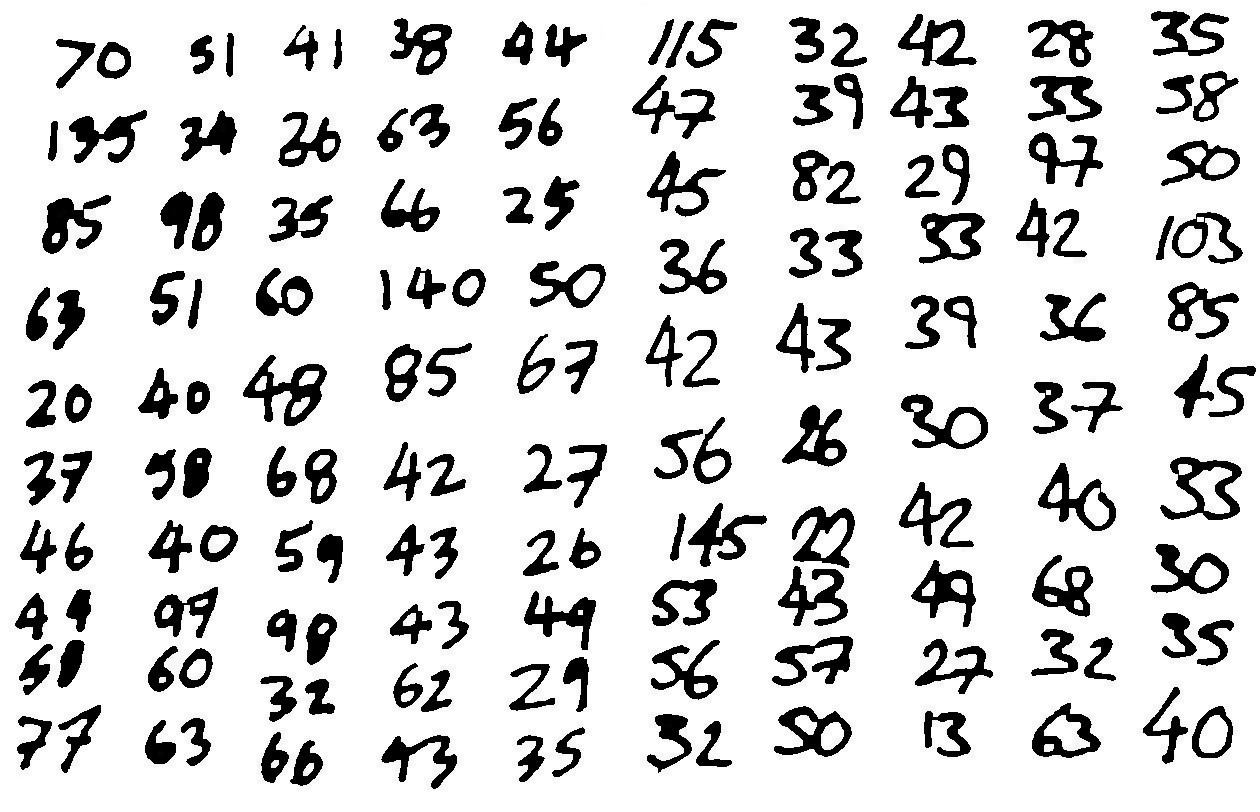 70 51 41 38 44 115 32 42 28 35
135 34 36 63 56 47 39 43 33 58
85 98 35 66 25 45 82 29 97 50
63 51 60 140 50 36 33 33 42 103
20 40 48 85 67 42 43 39 36 85
37 58 68 42 27 56 26 30 37 45
46 40 59 43 26 145 22 42 40 33
49 97 98 43 49 53 43 49 68 30
58 60 32 62 29 56 57 27 32 35
77 63 66 43 35 32 50 13 63 40